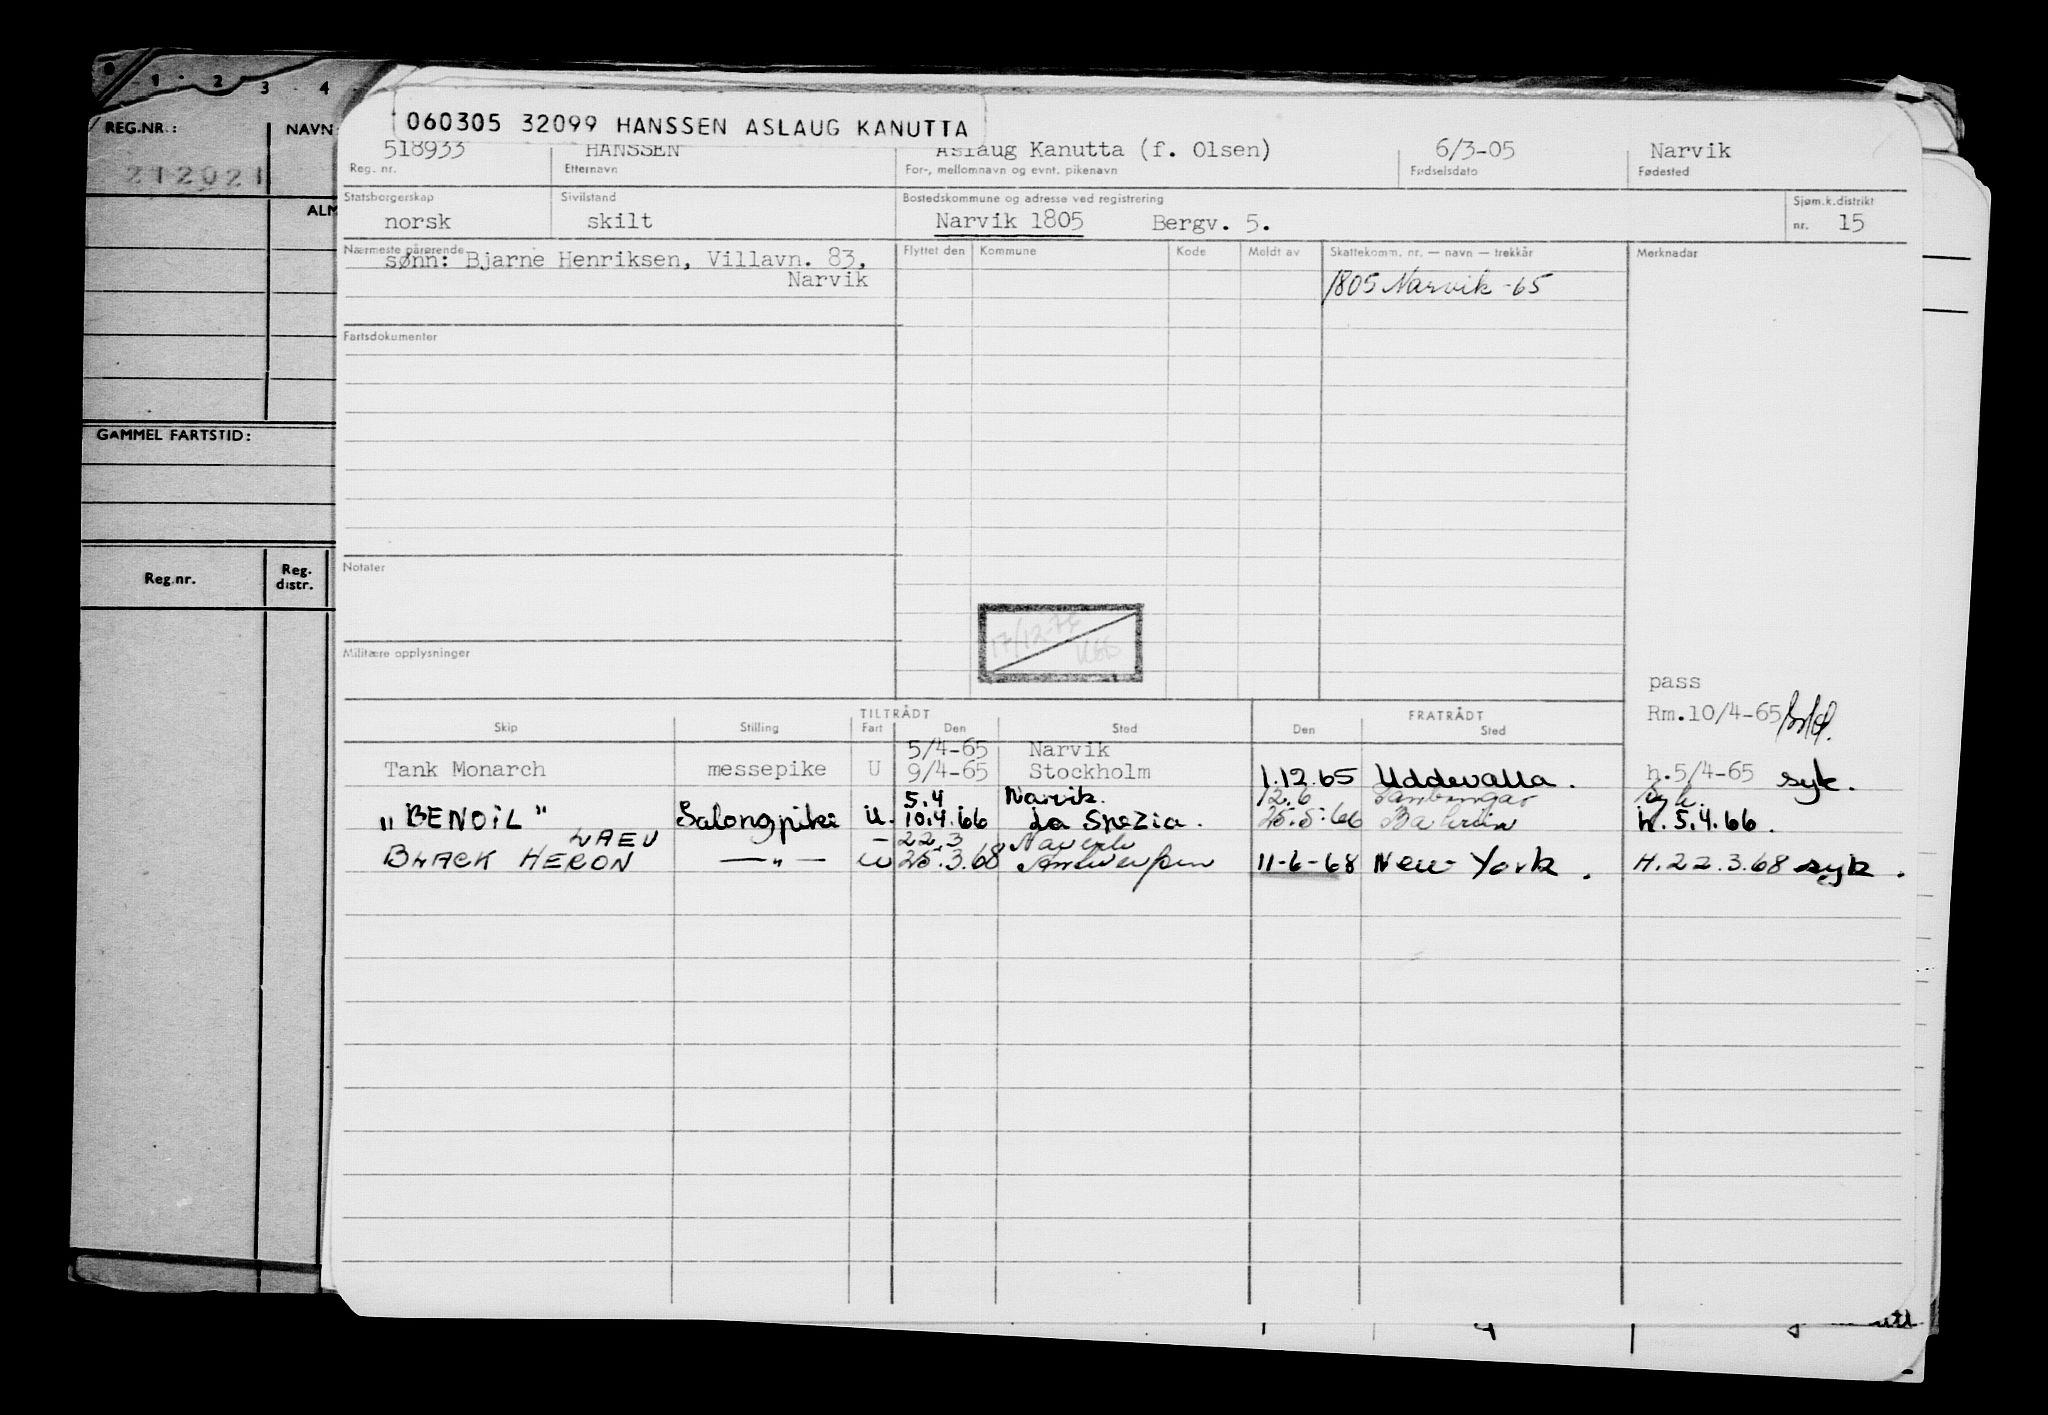 1 2 3 4
REG.NR.: NAVN
212021
ALM
GAMMEL FARTSTID:
Reg.nr. Reg. distr.
060305 32099 HANSSEN ASLAUG KANUTTA
518933 HANSSEN Aslaug Kanutta (f. Olsen) 6/3-05 Narvik
Reg. nr. Etternavn For-, mellomnavn og evnt. pikenavn Fødselsdato Fødested
Statsborgerskap Sivilstand Bostedskommune og adresse ved registrering Sjøm.k.distrikt
norsk skilt Narvik 1805 Bergv. 5. nr. 15
Nærmeste pårørende Flyttet den Kommune Kode Meldt av Skattekomm. nr. — navn — trekkår Merknadar
sønn: Bjarne Henriksen, Villavn. 83,
Narvik 1805 Narvik -65
Fartsdokumenter
Notater
17/12-75
Militære opplysninger
pass
Rm.10/4-65
TILTRÅDT FRATRÅDT
Skip Stilling Fart Den Sted Den Sted
5/4-65 Narvik
Tank Monarch messepike U 9/4-65 Stockholm 1.12.65 Uddevalla. h.5/4-65 syk.
5.4 Narvik. 12.6 syk.
"BENOIL" Salongpike U. 10.4.66 La Spezia. 25.5.66 Bahrein h. 5.4.66.
LAEU — 22.3 Narvik
BLACK HERON —"— U 25.3.68 Antwerpen 11-6-68 New York. H.22.3.68 syk.